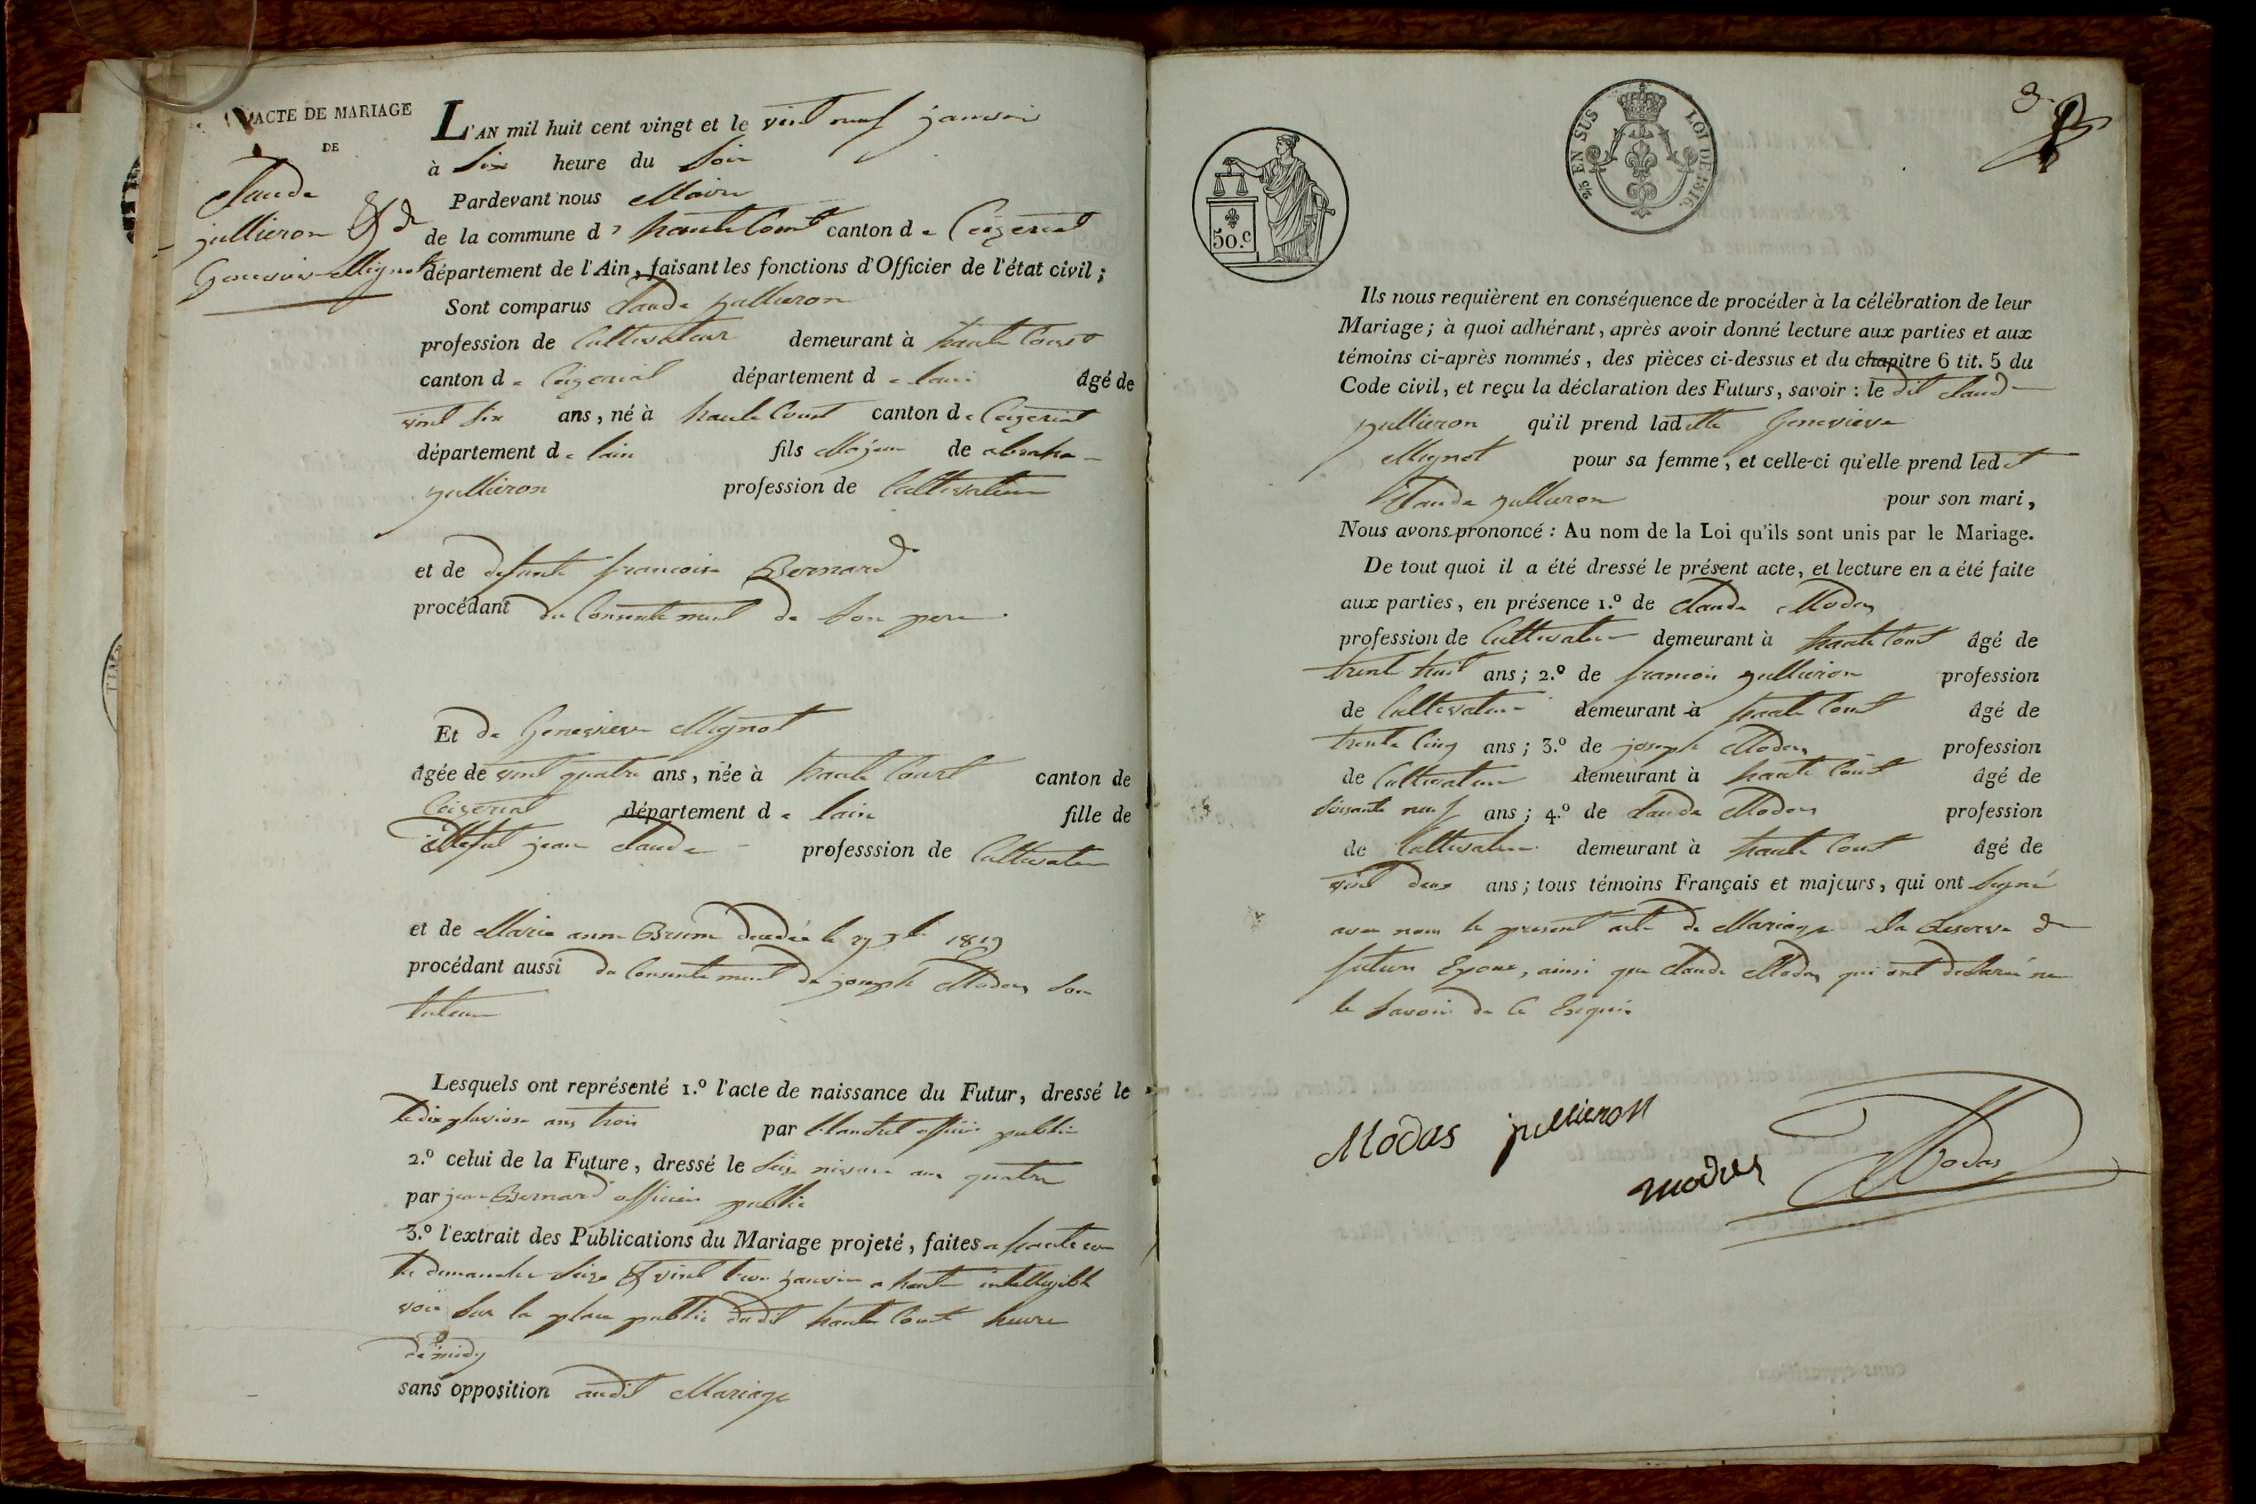 ACTE DE MARIAGE
DE
Claude
jullieron Et de
Genevieve Mignot
L'AN mil huit cent vingt et le vint neuf janvier
à Six heure du Soir
Pardevant nous Maire
de la commune d haute Court canton de Ceizeriat
département de l'Ain, faisant les fonctions d'Officier de l'état civil;
Sont comparus Claude jullieron
profession de Cultivateur demeurant à haute Court
canton de Ceizeriat département de lain âgé de
vint six ans, né à haute Court canton de Ceizeriat
département de lain fils Majeur de abraham
jullieron profession de Cultivateur
et de defunte francoise Bernard
procédant du Consentement de Son pere
Et de Genevieve Mignot
âgée de vint quatre ans, née à haute Court canton de
Ceizeriat département de lain fille de
jean Claude professsion de Cultivateur
et de Marie anne Brun decedée le 1819
procédant aussi du Consentement de joseph Modas Son
tuteur
Lesquels ont représenté 1.º l'acte de naissance du Futur, dressé le
le dix pluviose ans trois par officier public
2.º celui de la Future, dressé le Seize nivose ans quatre
par jean Bernard officier public
3.º l'extrait des Publications du Mariage projeté, faites a haute cour
les dimanches Seize Et vint trois janvier a haute intelligible
voix Sur la place public dudit haute Court heure
de midy
sans opposition audit Mariage
50.c
25 EN SUS
LOI DE 1816.
3
Ils nous requièrent en conséquence de procéder à la célébration de leur
Mariage; à quoi adhérant, après avoir donné lecture aux parties et aux
témoins ci-après nommés, des pièces ci-dessus et du chapitre 6 tit. 5 du
Code civil, et reçu la déclaration des Futurs, savoir: le dit Claude
jullieron qu'il prend ladette Genevieve
Mignot pour sa femme, et celle-ci qu'elle prend ledit
Claude jullieron pour son mari,
Nous avons prononcé: Au nom de la Loi qu'ils sont unis par le Mariage.
De tout quoi il a été dressé le présent acte, et lecture en a été faite
aux parties, en présence 1.º de Claude Modas
profession de Cultivateur demeurant à haute Court âgé de
trente huit ans; 2.º de francois jullieron profession
de Cultivateur demeurant à haute Court âgé de
trente Cinq ans; 3.º de joseph Modas profession
de Cultivateur demeurant à haute Court âgé de
soisante neuf ans; 4.º de Claude Modas profession
de Cultivateur demeurant à haute Court âgé de
vint deux ans; tous témoins Français et majeurs, qui ont Signé
avec nous le present acte de Mariage a la Reserve de
futurs Epoux, ainsi que Claude Modas qui ont declaré ne
le Savoir de Ce Enquis
Modas jullieron
modas Modas